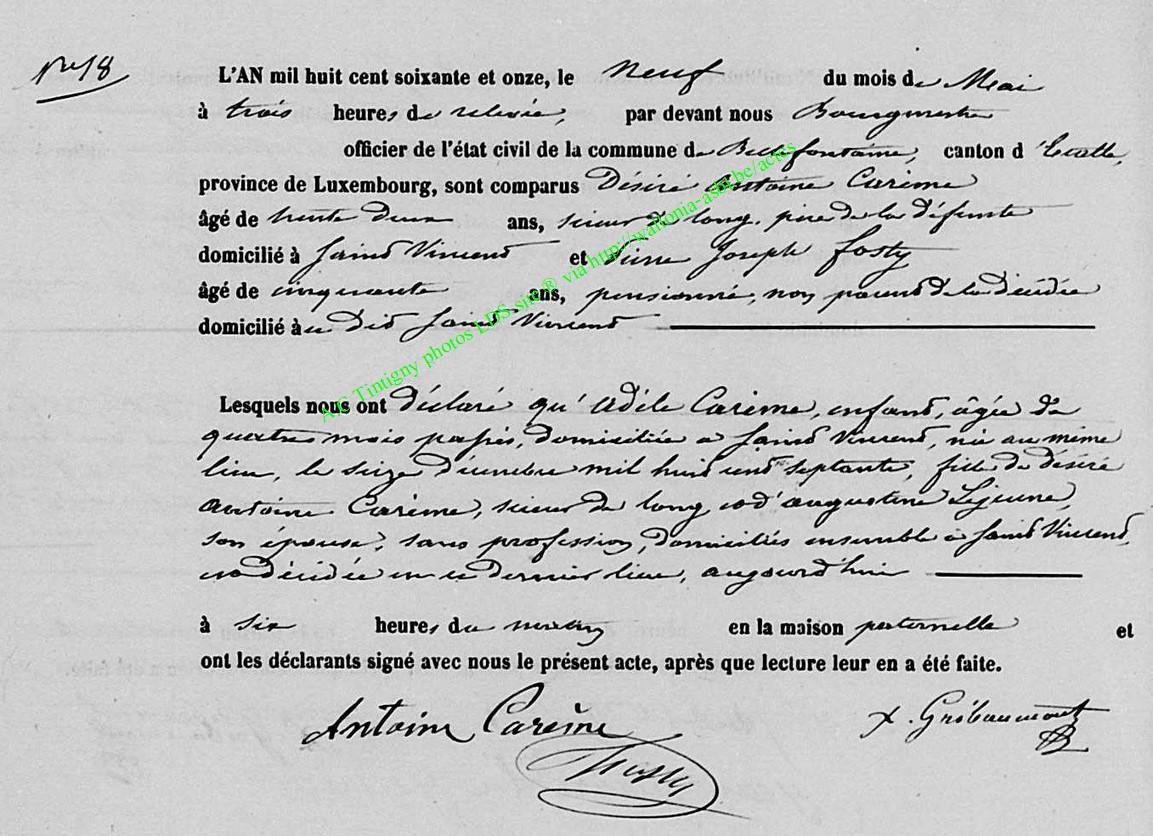 N° 18
L'AN mil huit cent soixante et onze, le neuf du mois de Mai
à trois heures de relevée, par devant nous Bourgmestre
officier de l'état civil de la commune de Bellefontaine, canton d'Etalle,
province de Luxembourg, sont comparus Désiré Antoine Carème
âgé de trente deux ans, scieur de long, père de la défunte
domicilié à Saint Vincent et Pierre Joseph Fosty
âgé de cinquante ans, pensionné, non parent de la décédée
domicilié à u Dit Saint Vincent
Lesquels nous ont déclaré qu'Adèle Carème, enfant, âgée de
quatre mois passés, domiciliée à Saint Vincent, née au même
lieu, le seize décembre mil huit cent septante, fille de désiré
Antoine Carème, scieur de long et d'augustine Lejeune,
son épouse, sans profession, domiciliés ensemble à Saint Vincent,
est décédée en ce dernier lieu, aujourd'hui
à six heures du matin en la maison paternelle et
ont les déclarants signé avec nous le présent acte, après que lecture leur en a été faite.
Antoine Carème
Fosty
A/C Tintigny photos LDS site® via http://wallonia-asbl.be/actes